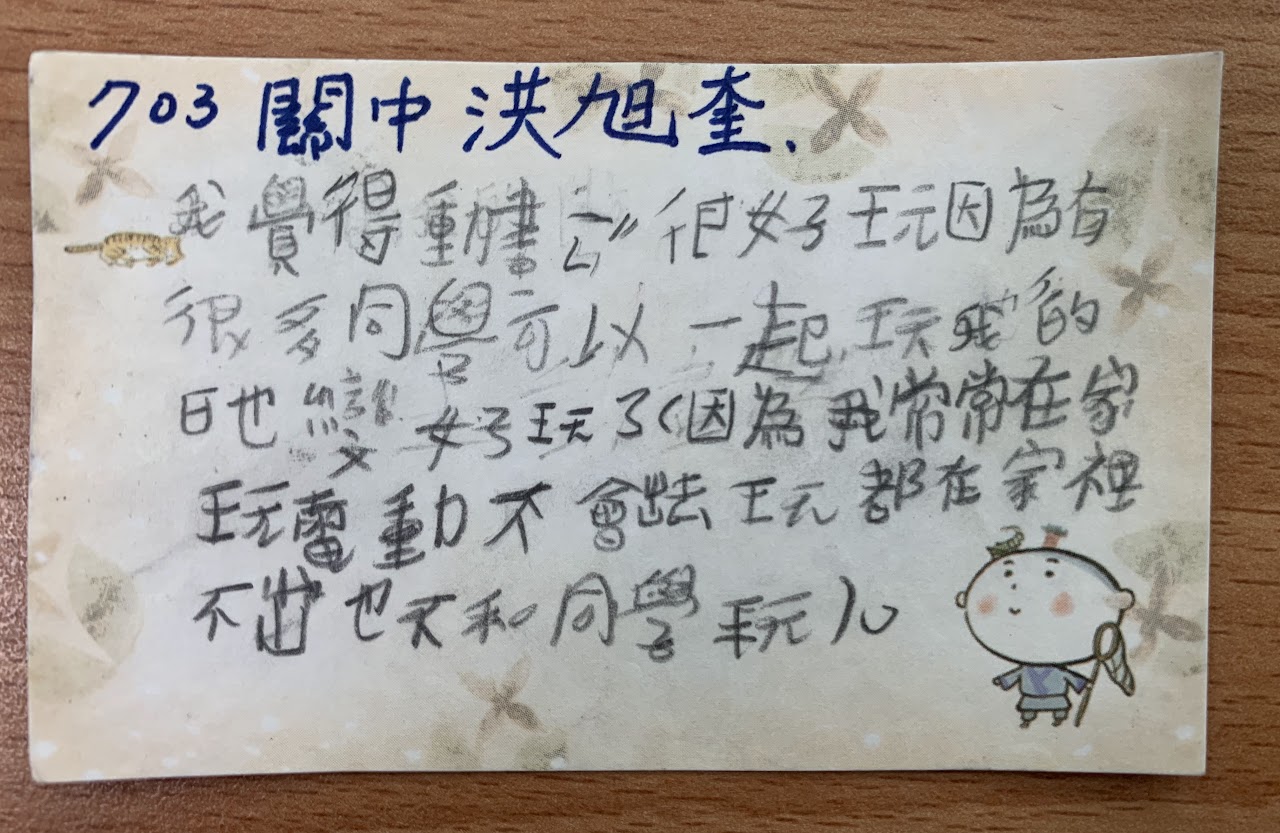 703 關中 洪旭奎.
我覺得動書ㄍㄨˇ很好玩因為有
很多同學可以一起玩我的
日也變好玩了(因為我常常在家
玩電動不會出去玩都在家裡
不出也不和同學玩)。